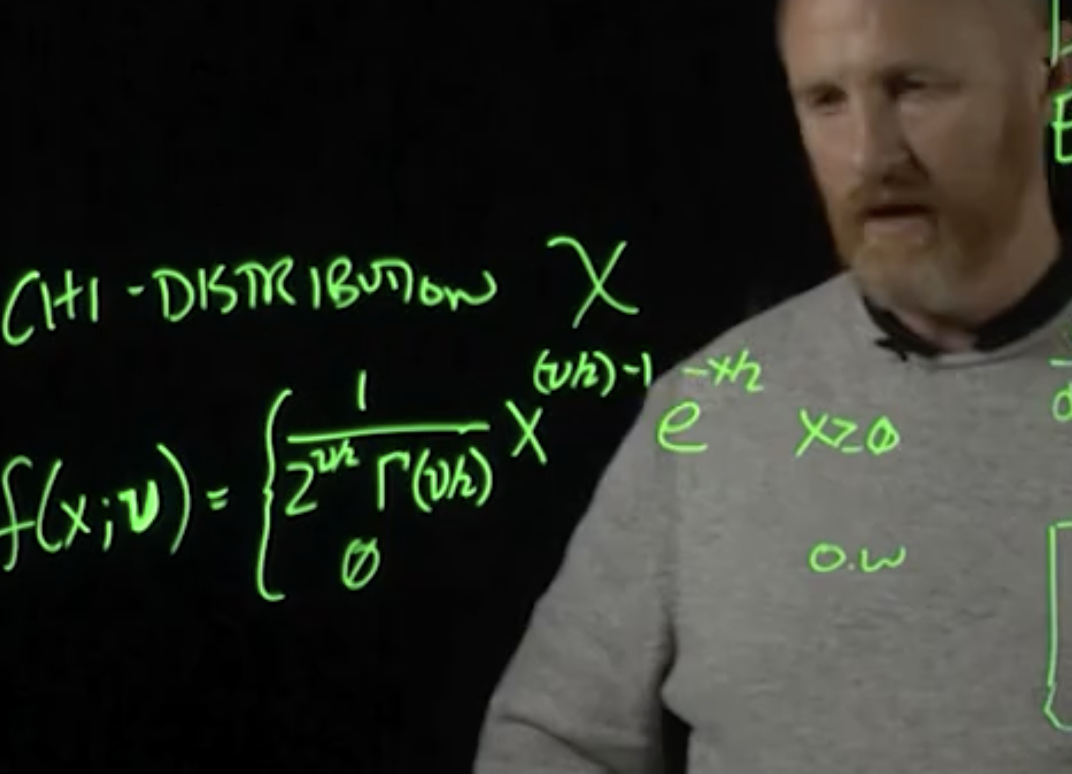 CHI-DISTRIBUTION χ
f(x;ν) = { 1 / (2^(ν/2) Γ(ν/2)) x^((ν/2)-1) e^(-x/2) x≥0
0 o.w